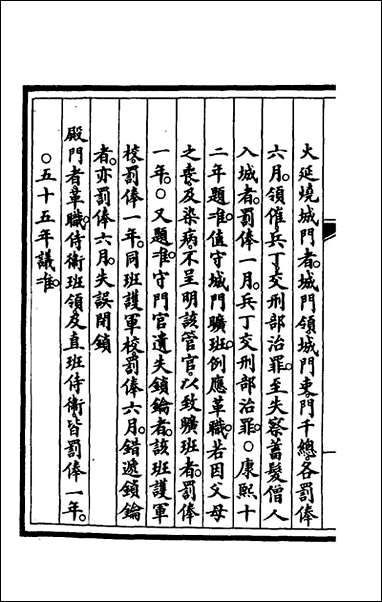 火延燒城門者城門領城門吏門千總各罰俸
六月領催兵丁交刑部治罪至失察蓄髮僧人
入城者罰俸一月兵丁交刑部治罪○康熙十
二年題准值守城門曠班例應革職若因父母
之喪及染病不呈明該管官以致曠班者罰俸
一年○又題准守門官遺失鎖鑰者該班護軍
校罰俸一年同班護軍校罰俸六月錯遞鎖鑰
者亦罰俸六月失誤閉鎖
殿門者革職侍衛班領及直班侍衛皆罰俸一年
○五十五年議准